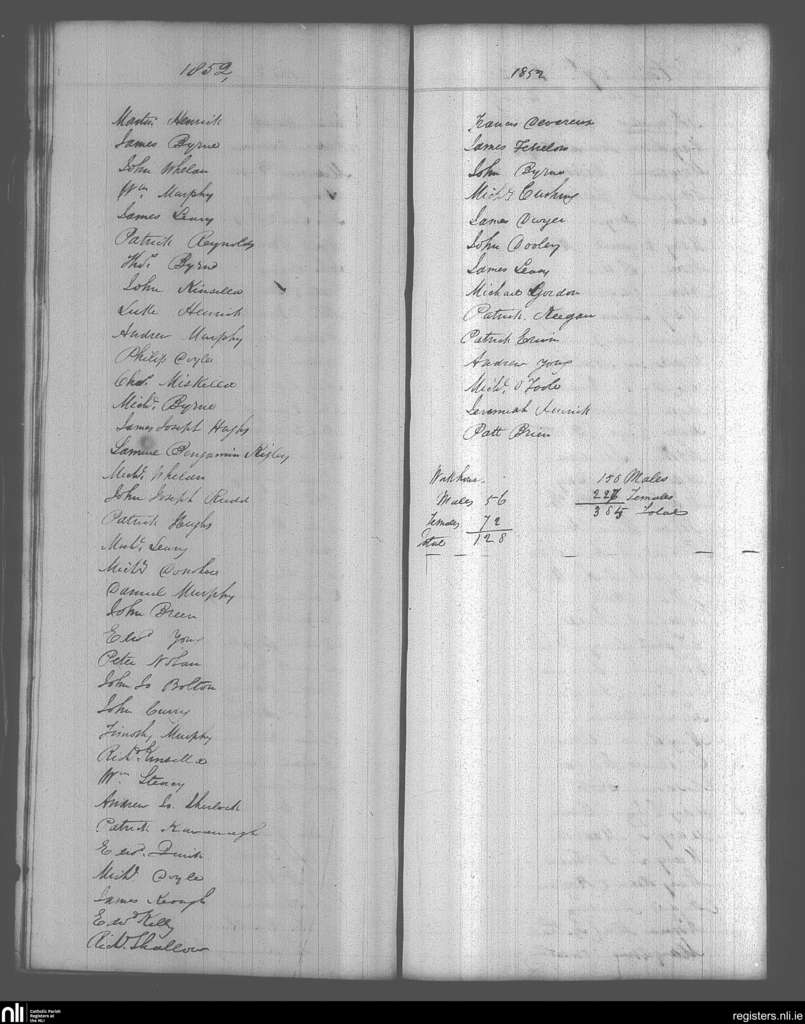 1852,
Martin Henrick
James Byrne
John Whelan
Wm Murphy
James Leary
Patrick Reynolds
Thos. Byrne
John Kinsella
Luke Henrick
Andrew Murphy
Philip Doyle
Chas. Miskella
Michl. Byrne
James Joseph Hughs
Samuel Bengamin Rigley
Michl. Whelan
John Joseph Rudd
Patrick Hughs
Michl. Leary
Michl. Donohue
Daniel Murphy
John Breen
Edwd. Young
Peter Nolan
John Js Bolton
John Curry
Timothy Murphy
Richd. Kinsella
Wm
Andrew Js. Sherlock
Patrick Kavanagh
Edwd.
Michl. Doyle
James Keough
Edwd Kelly
Richd. Shallow
1852
Francis Devereux
James Fenelon
John Byrne
Michl Cushing
James Dwyer
John Dooley
James Leary
Michael Gordon
Patrick Keegan
Patrick
Andrew Young
Michl. O'Toole
Jeremiah Henrick
Patt Brien
Workhouse.
Males 56
Females 72
Total 128
158 Males
227 Females
385 Total
nli
Catholic Parish
Registers at
the NLI
registers.nli.ie